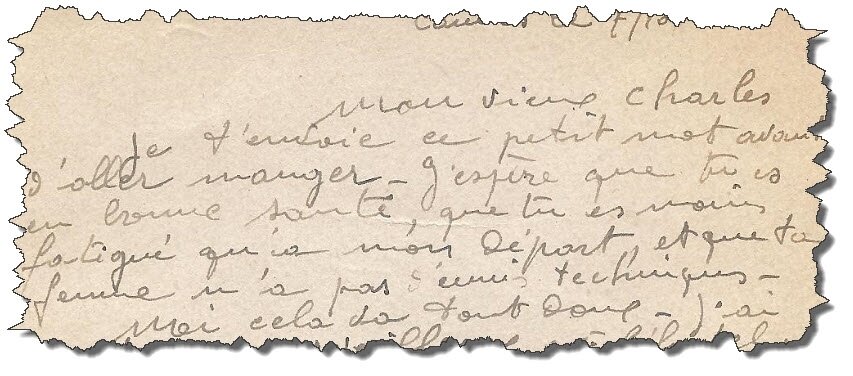 Mon vieux Charles
Je t'envoie ce petit mot avan
d'aller manger - J'espère que tu es
en bonne santé, que tu es moins
fatigué qu'à mon départ, et que ta
femme n'a pas d'ennuis techniques -
Moi cela va tout doux - J'ai